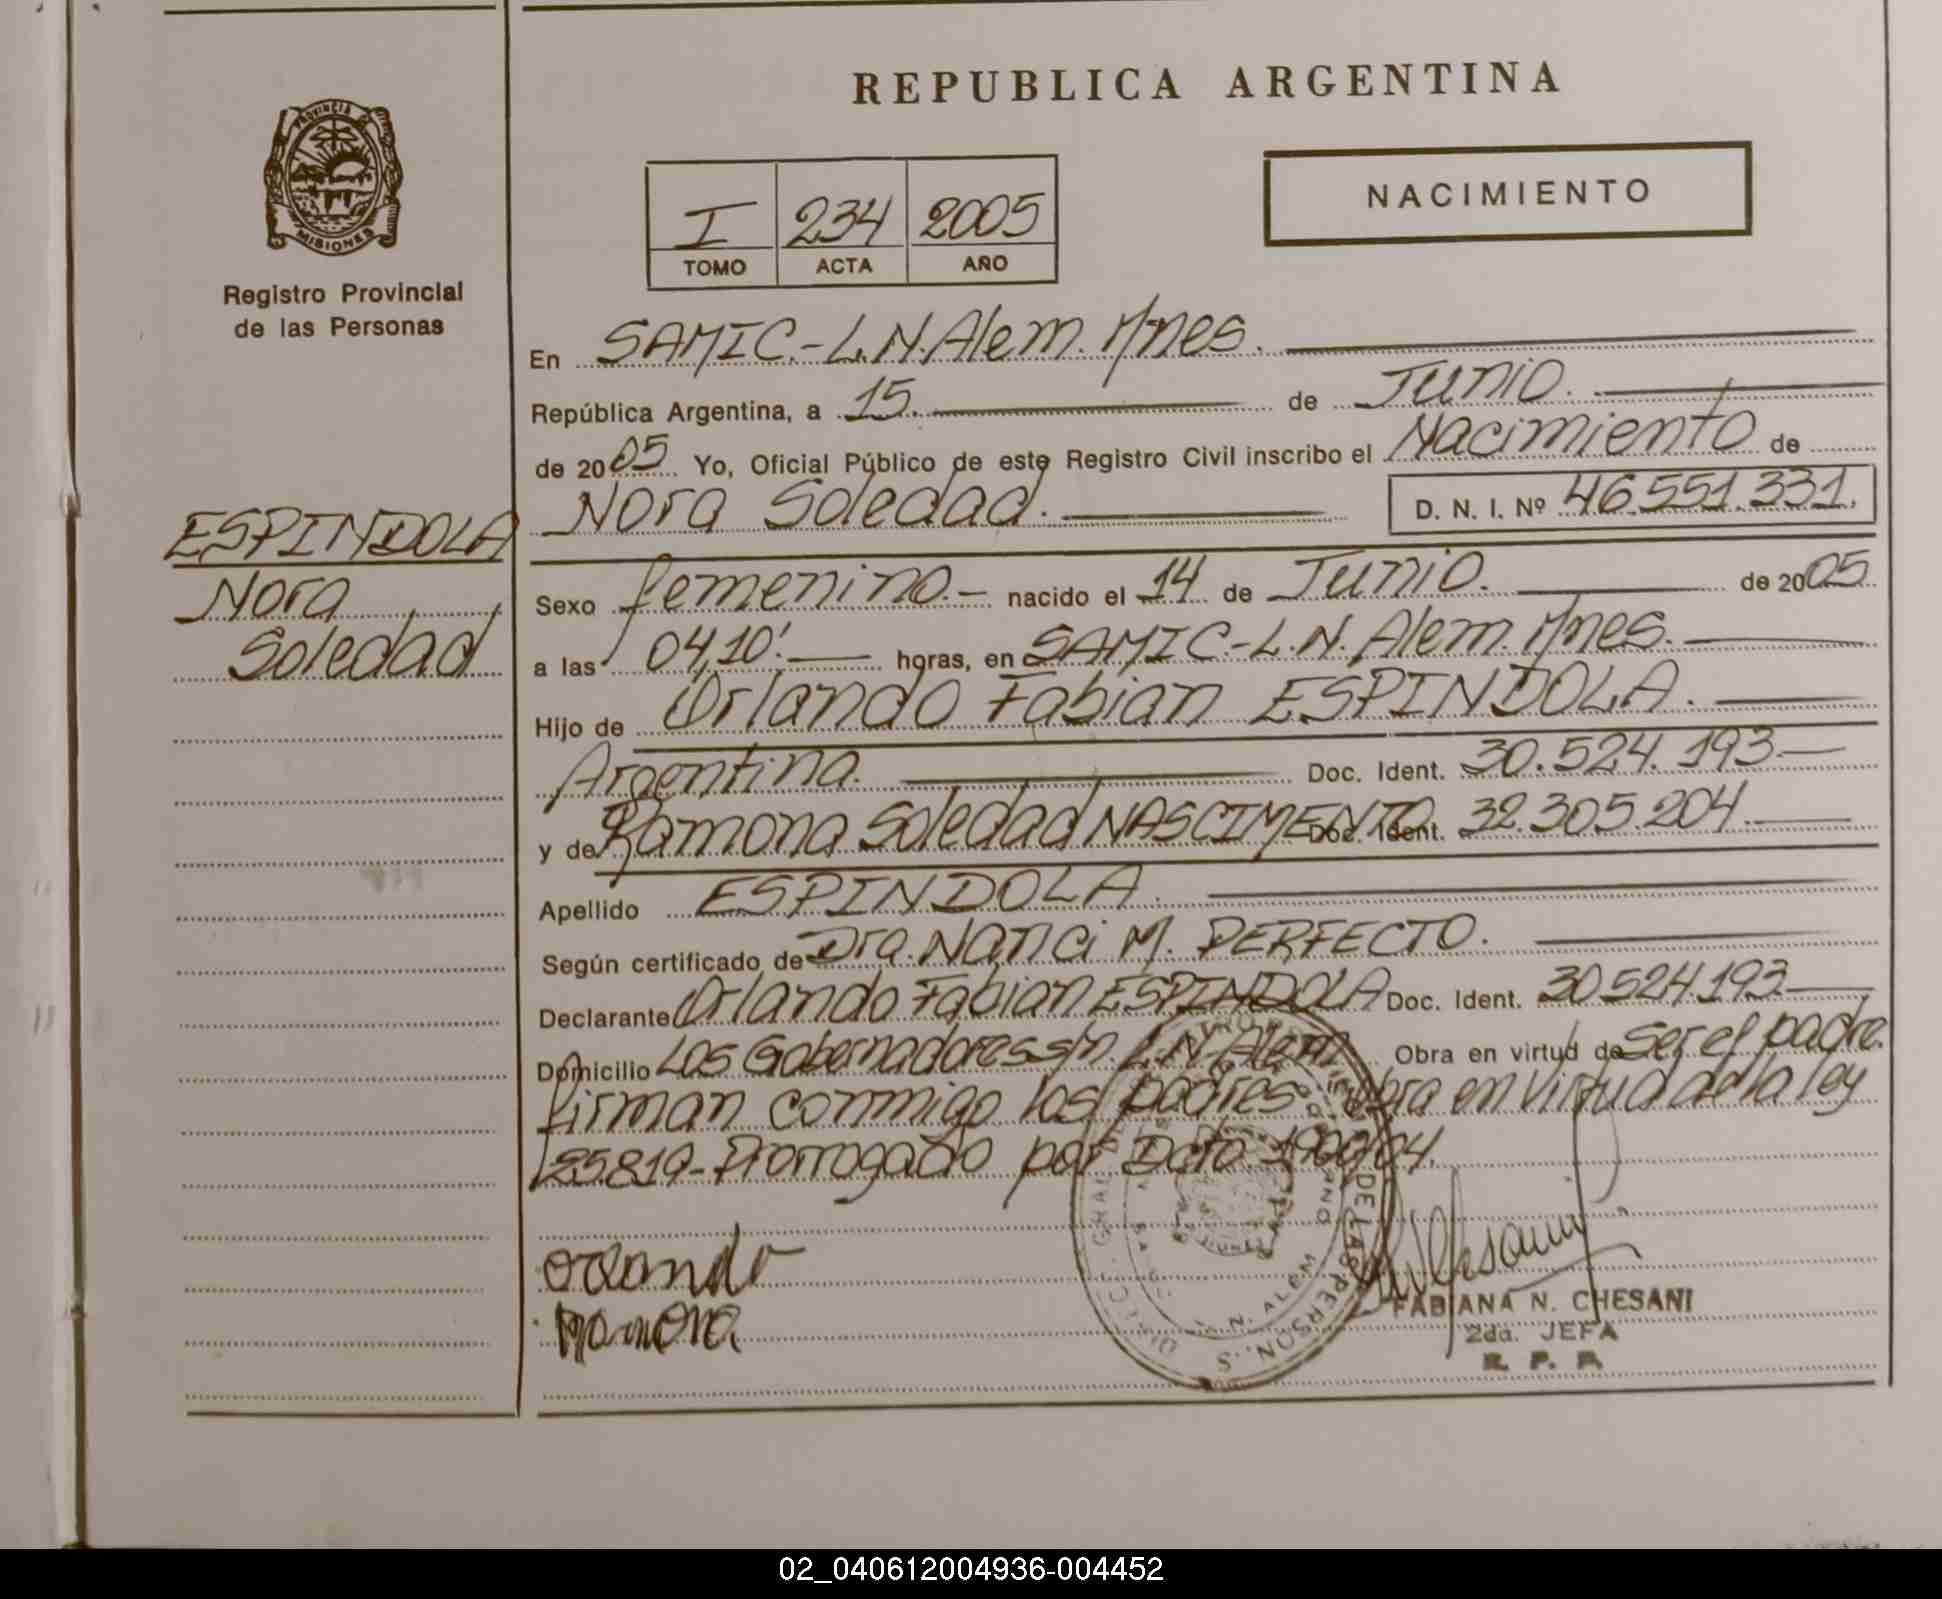 REPUBLICA ARGENTINA
PROVINCIA DE MISIONES
Registro Provincial
de las Personas
NACIMIENTO
I 234 2005
TOMO ACTA AÑO
En SAMIC.-L.N.Alem. Mnes.
República Argentina, a 15. de Junio.
de 2005 Yo, Oficial Público de este Registro Civil inscribo el Nacimiento de
Nora Soledad. D. N. I. Nº 46.551.331.
ESPINDOLA
Nora
Soledad
Sexo femenino.- nacido el 14 de Junio. de 2005
a las 04,10'. horas, en SAMIC.-L.N. Alem. Mnes.
Hijo de Orlando Fabian ESPINDOLA.
Argentina. Doc. Ident. 30.524.193
y de Ramona Soledad NASCIMENTO Doc. Ident. 32.305.204.
Apellido ESPINDOLA.
Según certificado de Dra. Nanci M. PERFECTO.
Declarante Orlando Fabian ESPINDOLA Doc. Ident. 30.524.193
Domicilio Los Gobernadores s/n. L.N. Alem Obra en virtud de ser el padre.
firman conmigo los padres. Obra en virtud de la ley
25.819-Prorrogado por Dcto. 1900/04.
DE LAS PERSONAS
L. N. ALEM
Orlando
Ramona
FABIANA N. CHESANI
2da. JEFA
R. P. P.
02_040612004936-004452